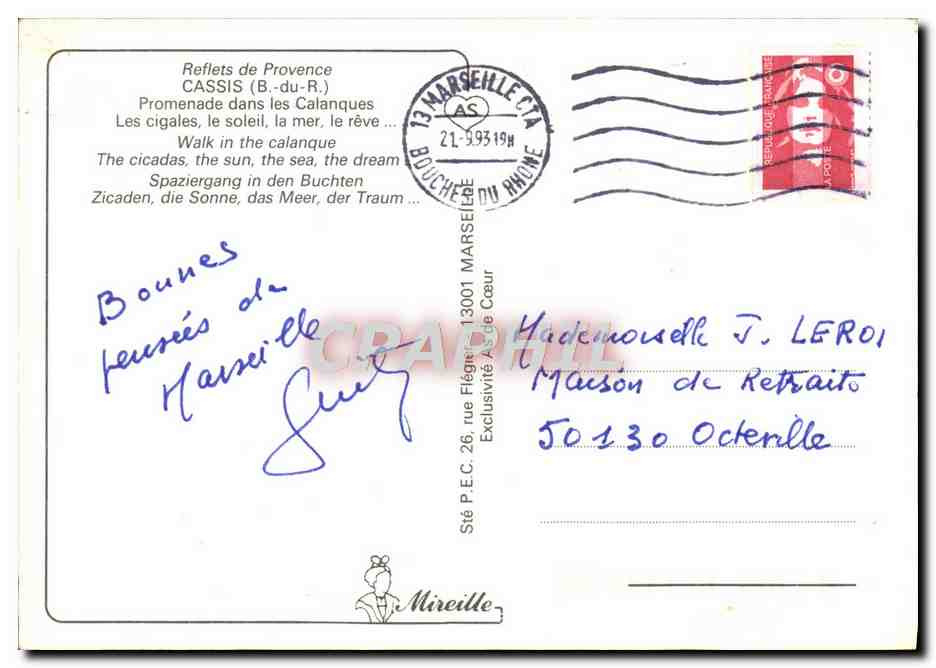 Reflets de Provence
CASSIS (B.-du-R.)
Promenade dans les Calanques
Les cigales, le soleil, la mer, le rêve ...
Walk in the calanque
The cicadas, the sun, the sea, the dream
Spaziergang in den Buchten
Zicaden, die Sonne, das Meer, der Traum ...
13 MARSEILLE CTA
AS
21.-9.93 19H
BOUCHES DU RHONE
REPUBLIQUE FRANÇAISE
LA POSTE
Bonnes
pensées de
Marseille
Sté P.E.C. 26, rue Flégier, 13001 MARSEILLE
Exclusivité As de Cœur
CPAPHIL
Mademoiselle J. LEROI
Maison de Retraite
50130 Octeville
Mireille